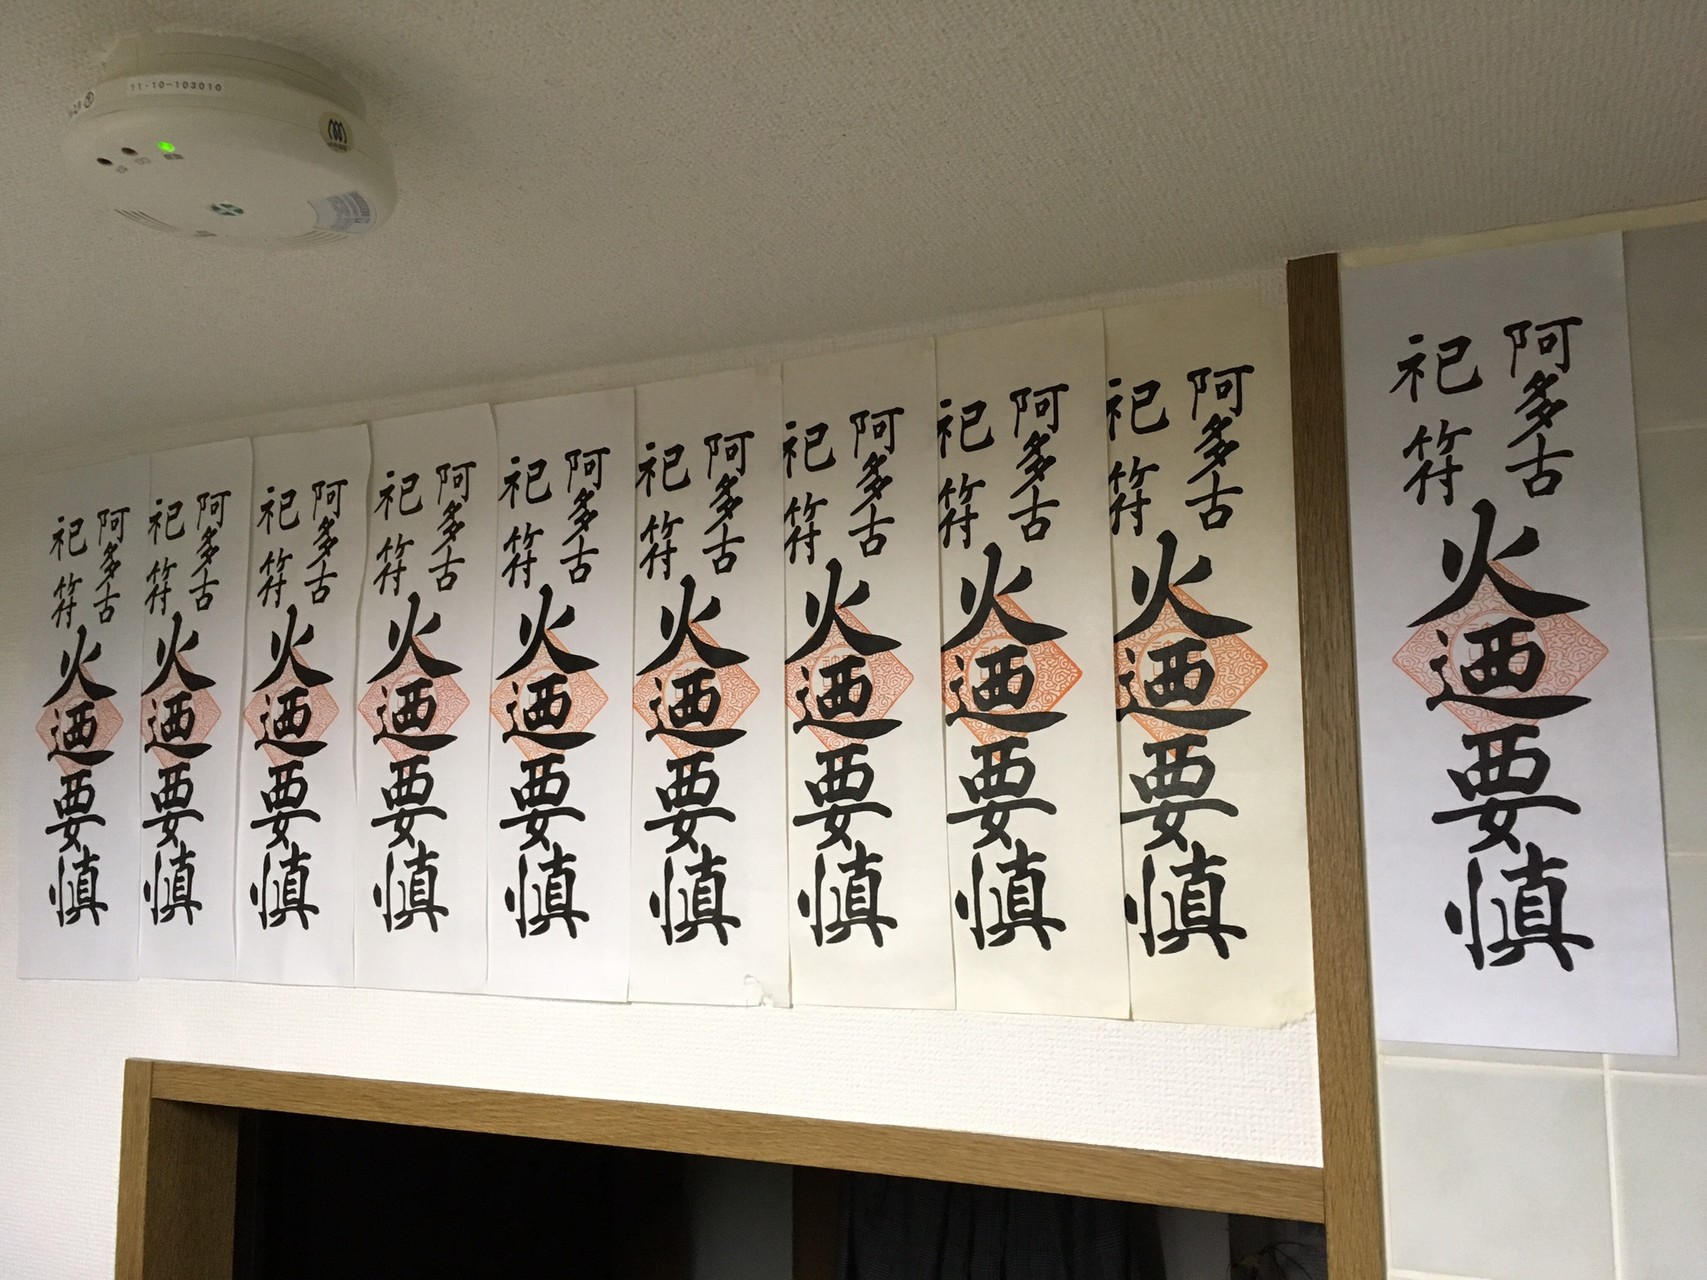 11-10-103010
阿多古
祀符
火迺要慎
阿多古
祀符
火迺要慎
阿多古
祀符
火迺要慎
阿多古
祀符
火迺要慎
阿多古
祀符
火迺要慎
阿多古
祀符
火迺要慎
阿多古
祀符
火迺要慎
阿多古
祀符
火迺要慎
阿多古
祀符
火迺要慎
阿多古
祀符
火迺要慎